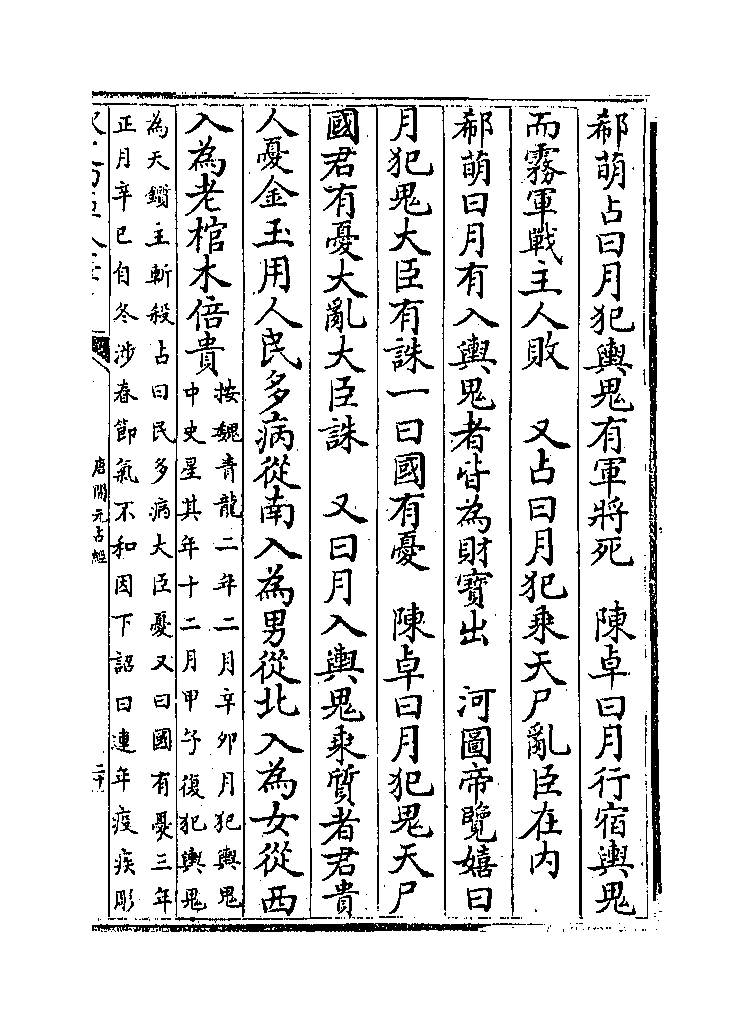 郗萌占曰月犯輿鬼有軍將死　陳卓曰月行宿輿鬼
而霧軍戰主人敗　又占曰月犯乘天尸亂臣在内
郗萌曰月有入輿鬼者皆為財寶出　河圖帝覽嬉曰
月犯鬼大臣有誅一曰國有憂　陳卓曰月犯鬼天尸
國君有憂大亂大臣誅　又曰月入輿鬼乘質者君貴
人憂金玉用人民多病從南入為男從北入為女從西
入為老棺木倍貴
按魏青龍二年二月辛卯月犯輿鬼
中史星其年十二月甲午復犯輿鬼
為天鑕主斬殺占曰民多病大臣憂又曰國有憂三年
正月辛巳自冬涉春節氣不和因下詔曰連年疫疾彫
唐開元占經